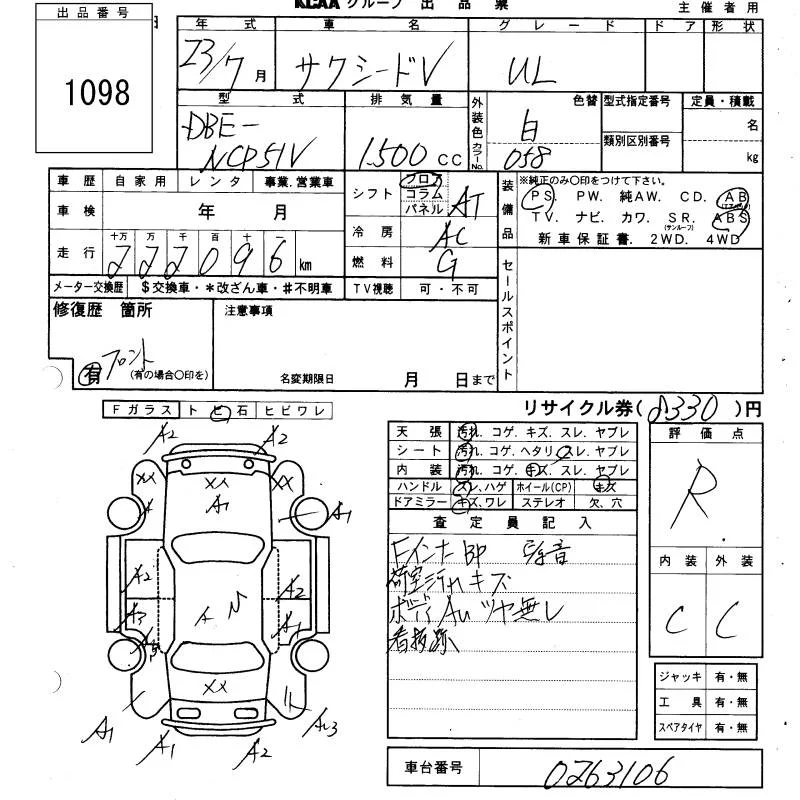 出品番号
1098
日
KCAA グループ 出品票
主催者用
年式 車名 グレード ドア 形状
23/7月 サクシードV UL
型式 排気量 外装色 カラーNo. 色替 型式指定番号 定員・積載
DBE-
NCP51V 1500 cc 白 058 類別区別番号 名 kg
車歴 自家用 レンタ 事業.営業車
シフト フロア コラム パネル AT
装備品 ※純正のみ〇印をつけて下さい。
PS. PW. 純AW. CD. AB
TV. ナビ. カワ. SR. ABS
(サンルーフ)
新車保証書. 2WD. 4WD
車検 年 月
冷房 AC
走行 十万 万 千 百 十 一
222096 km
燃料 G
メーター交換歴 $交換車・*改ざん車・#不明車
TV視聴 可・不可
セールスポイント
修復歴 箇所
有 フロント
(有の場合〇印を)
注意事項
名変期限日 月 日まで
リサイクル券( 8330 )円
Fガラス トビ石 ヒビワレ
天張 汚れ. コゲ. キズ. スレ. ヤブレ
シート 汚れ. コゲ. ヘタリ. スレ. ヤブレ
内装 汚れ. コゲ. キズ. スレ. ヤブレ
ハンドル スレ. ハゲ ホイール(CP) キズ
ドアミラー キズ. ワレ ステレオ 欠. 穴
評価点
R
内装 外装
C C
査定員記入
荷室汚れ キズ
ボディ AU ツヤ無し
看板跡
A2 A2
XX XX XX
A1 A1
A2 A2
A3 A1
XX
A1 A1 A2
ジャッキ 有・無
工具 有・無
スペアタイヤ 有・無
車台番号 0263106